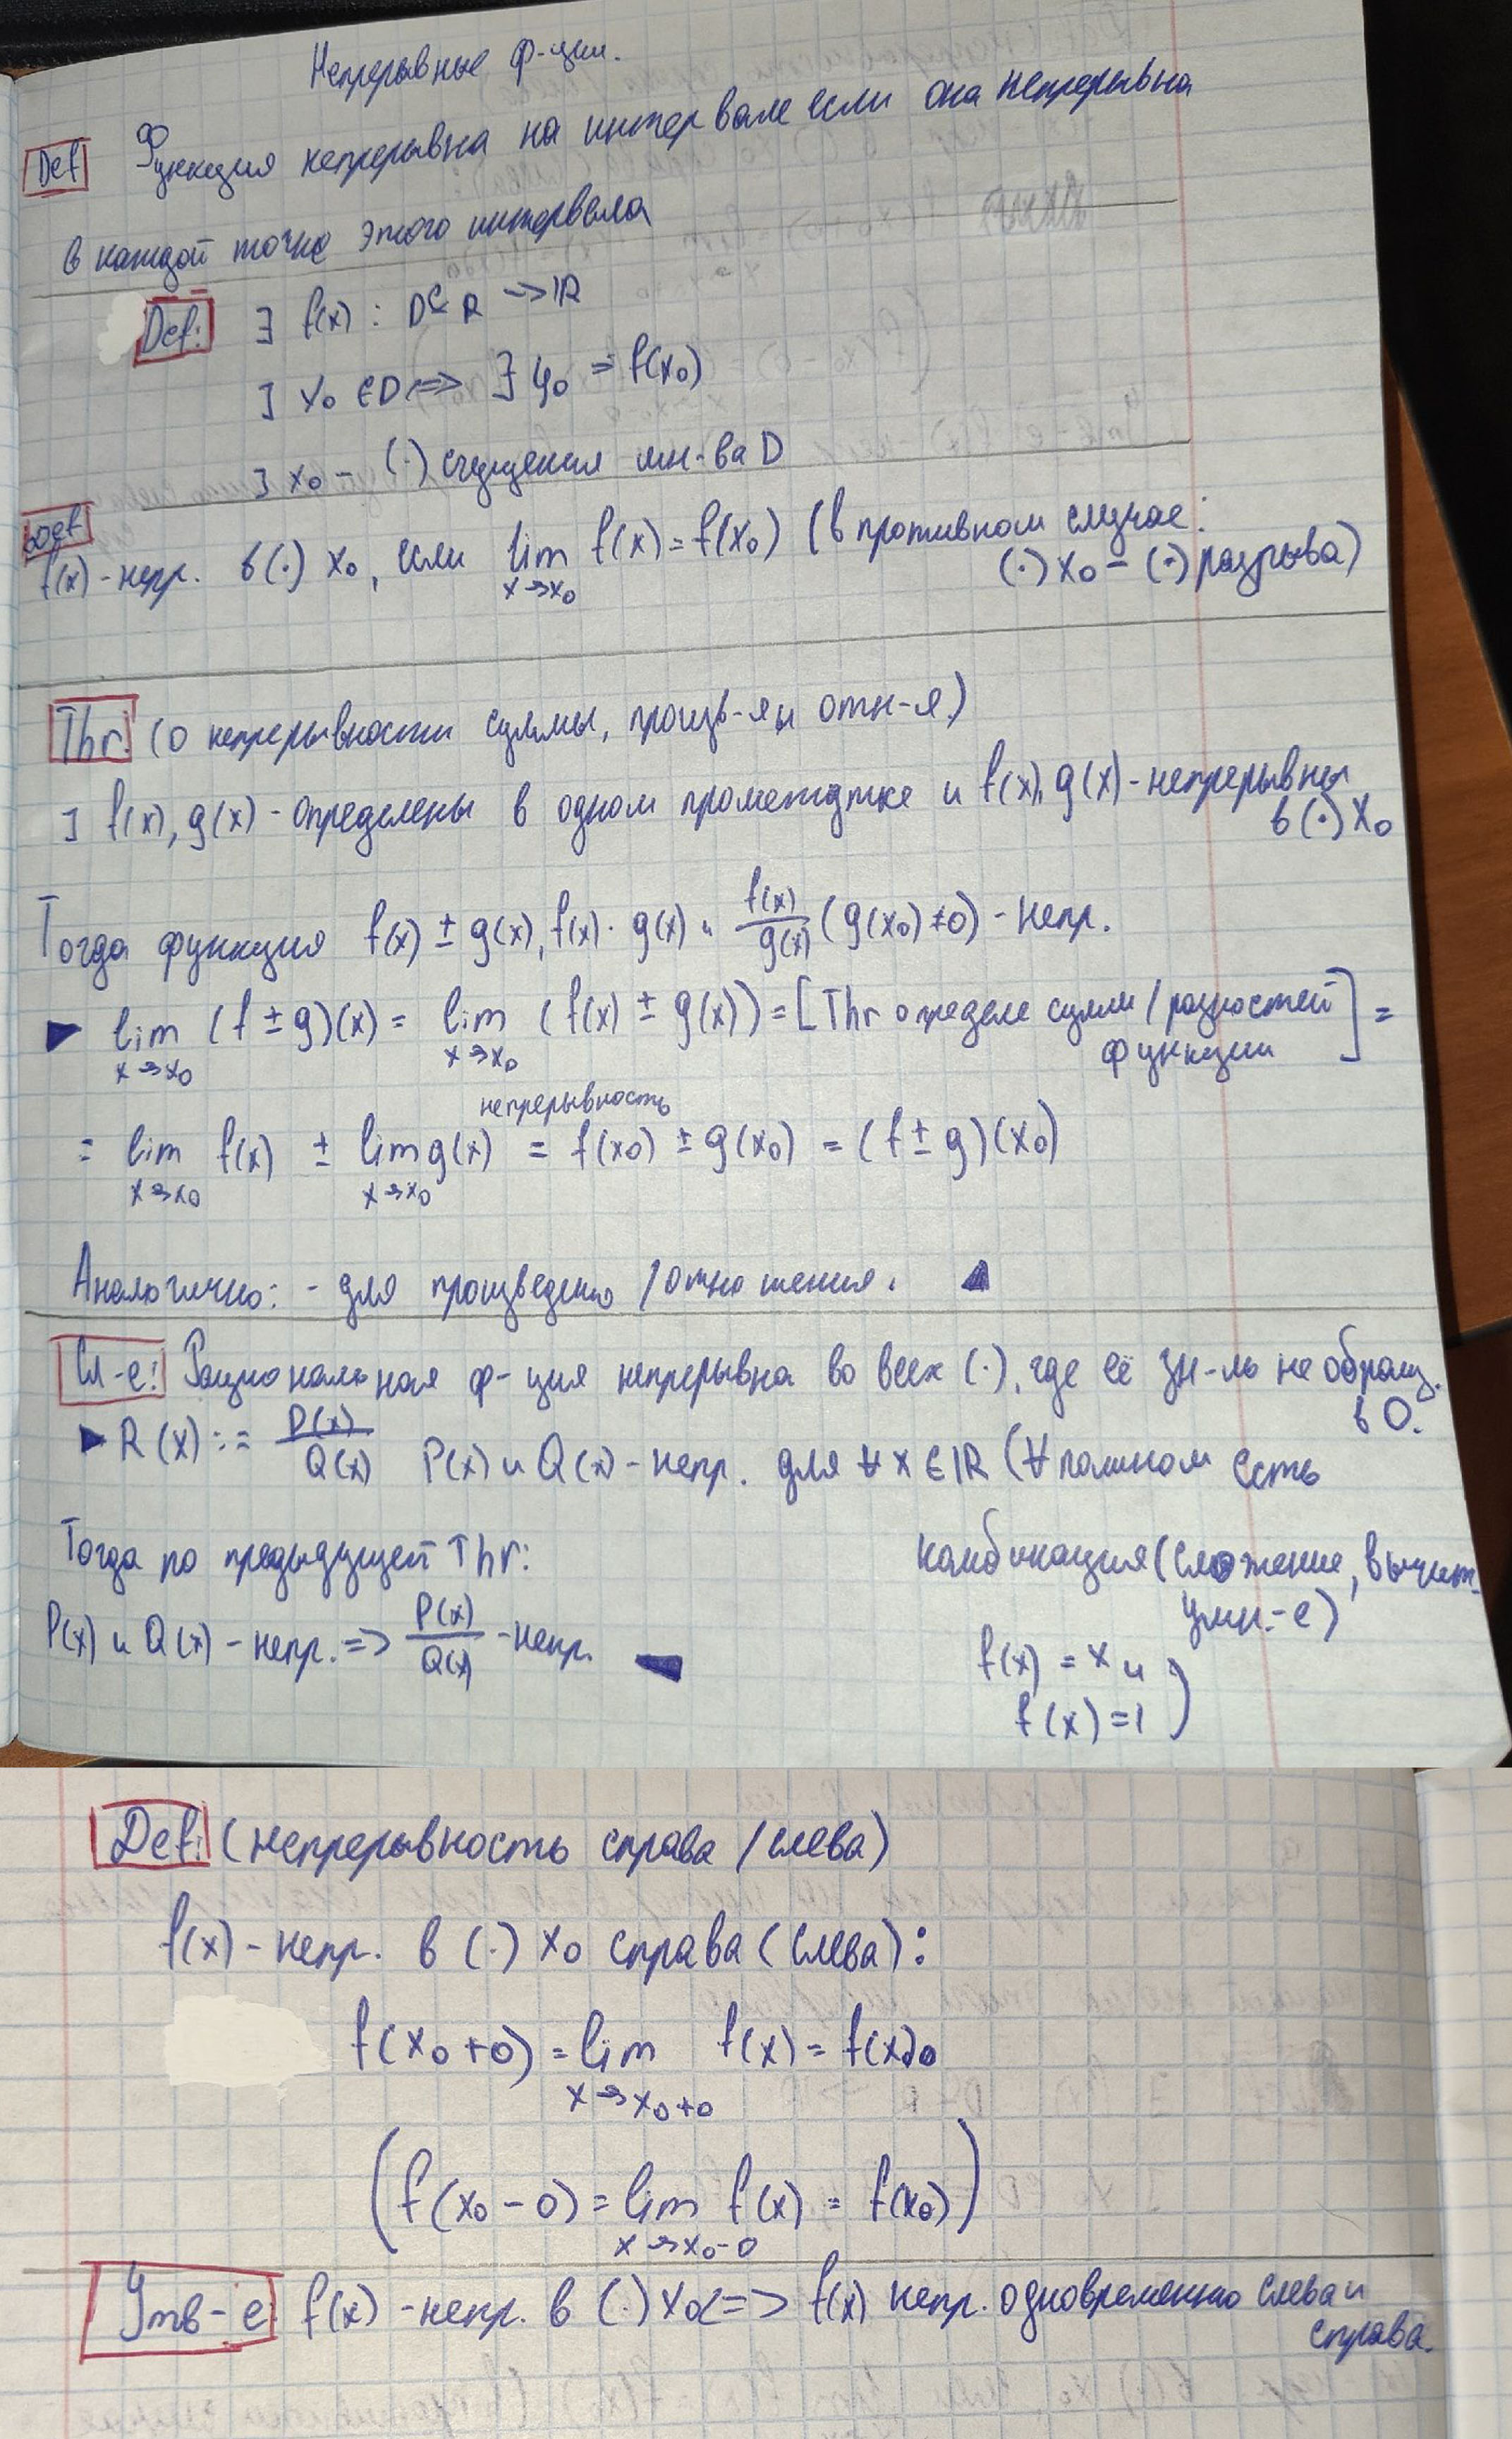 Непрерывные ф-ции.
Def Функция непрерывна на интервале если она непрерывна
в каждой точке этого интервала
Def: ∃ f(x) : D⊆R → ℝ
∃ x₀ ∈ D <=> ∃ y₀ = f(x₀)
∃ x₀ - (·) сгущения мн-ва D
Def
f(x) - непр. в (·) x₀, если lim f(x) = f(x₀) (в противном случае:
x→x₀
(·) x₀ - (·) разрыва)
Thr: (о непрерывности суммы, произв-я и отн-я)
∃ f(x), g(x) - определены в одном промежутке и f(x), g(x) - непрерывны
в (·) x₀
Тогда функция f(x) ± g(x), f(x) · g(x) и f(x)/g(x) (g(x₀) ≠ 0) - непр.
▶ lim (f ± g)(x) = lim (f(x) ± g(x)) = [Thr о пределе суммы / разностей
x→x₀ x→x₀ функции] =
непрерывность
= lim f(x) ± lim g(x) = f(x₀) ± g(x₀) = (f ± g)(x₀)
x→x₀ x→x₀
Аналогично: - для произведения / отношения. ◀
Сл-е: Рациональная ф-ция непрерывна во всех (·), где её зн-ль не обращ.
в 0.
▶ R(x) := P(x)/Q(x) P(x) и Q(x) - непр. для ∀ x ∈ ℝ (∀ полином есть
комбинация (сложение, вычит.
умн.-е)
f(x) = x и
f(x) = 1 )
Тогда по предыдущей Thr:
P(x) и Q(x) - непр. => P(x)/Q(x) - непр. ◀
Def: (непрерывность справа / слева)
f(x) - непр. в (·) x₀ справа (слева):
f(x₀+0) = lim f(x) = f(x)₀
x→x₀+0
(f(x₀-0) = lim f(x) = f(x₀))
x→x₀-0
Утв-е: f(x) - непр. в (·) x₀ <=> f(x) непр. одновременно слева и
справа.